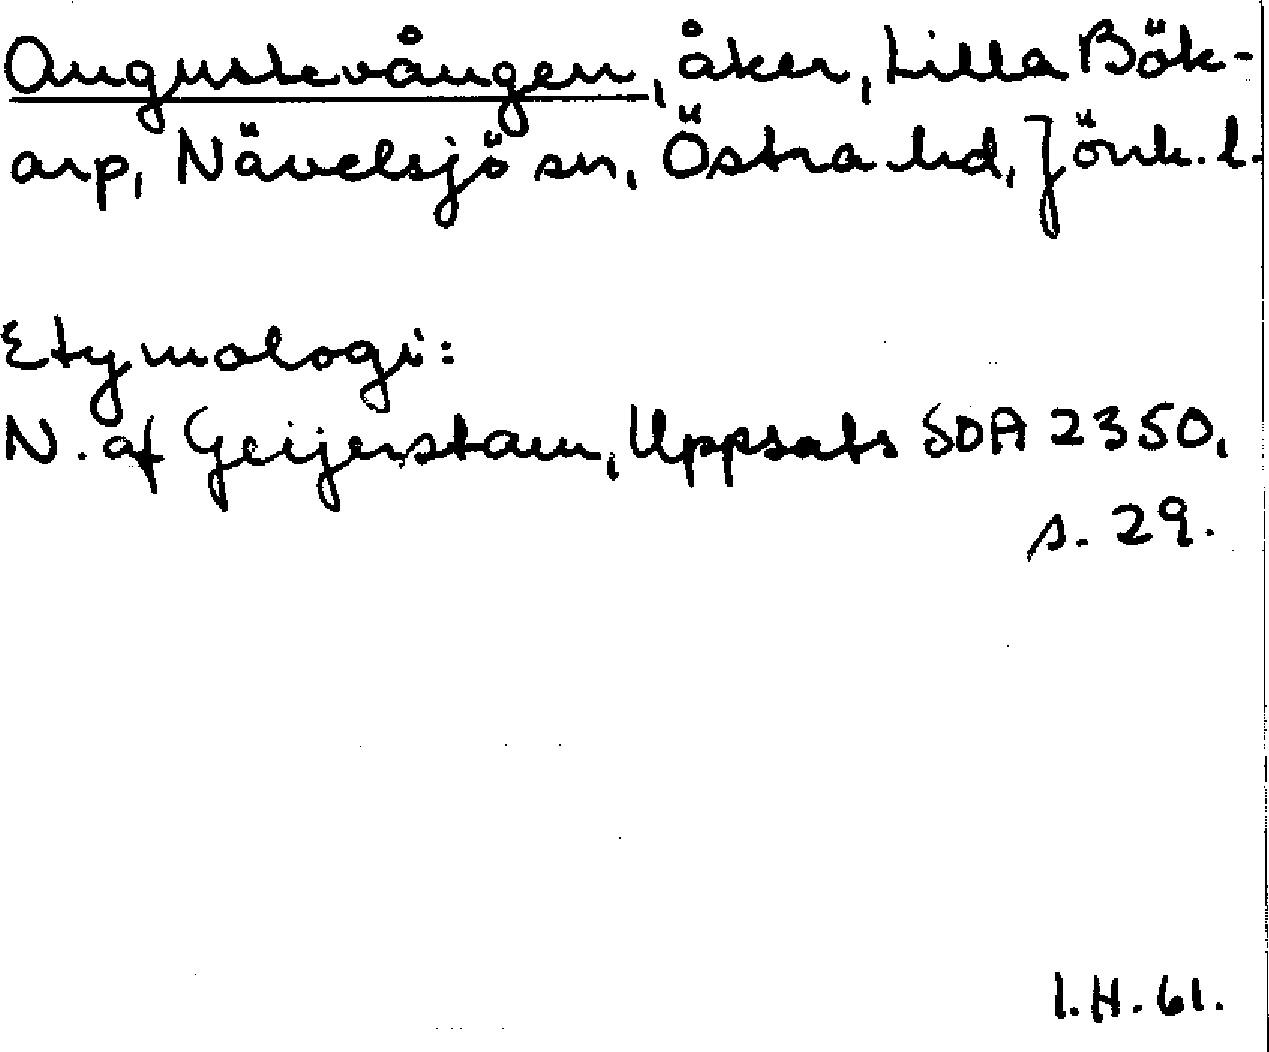 Augustevången, åker, Lilla Bök-
arp, Nävelsjö sn, Östra hd, Jönk. l.
Etymologi:
N. af Geijerstam, Uppsats SOA 2350,
s. 29.
I.H. 61.